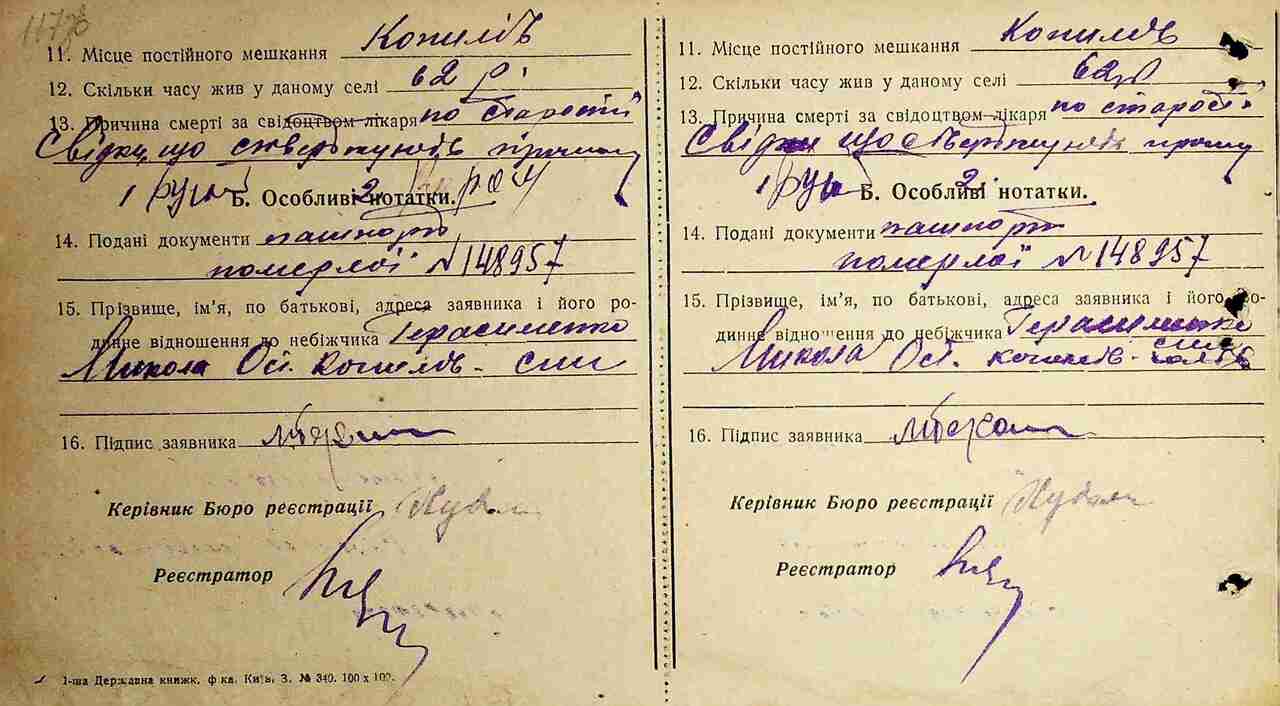 11. Місце постійного мешкання Копилів
12. Скільки часу жив у даному селі 62 р.
13. Причина смерті за свідоцтвом лікаря по старості
Свідки, що стверджують
1 2.
Б. Особливі нотатки.
14. Подані документи пашпорт
померлої № 148957
15. Прізвище, ім'я, по батькові, адреса заявника і його ро-
динне відношення до небіжчика Герасименко
Микола Осі. Копилів - син
16. Підпис заявника
Керівник Бюро реєстрації
Реєстратор
1-ша Державна книжк. ф-ка. Київ. З. № 340. 100 х 100.
11. Місце постійного мешкання Копилів
12. Скільки часу жив у даному селі 62 р
13. Причина смерті за свідоцтвом лікаря по старості
Свідки що стверджують
1 2.
Б. Особливі нотатки.
14. Подані документи пашпорт
померлої № 148957
15. Прізвище, ім'я, по батькові, адреса заявника і його ро-
динне відношення до небіжчика Герасименко
Микола Осі. Копилів - син
16. Підпис заявника
Керівник Бюро реєстрації
Реєстратор